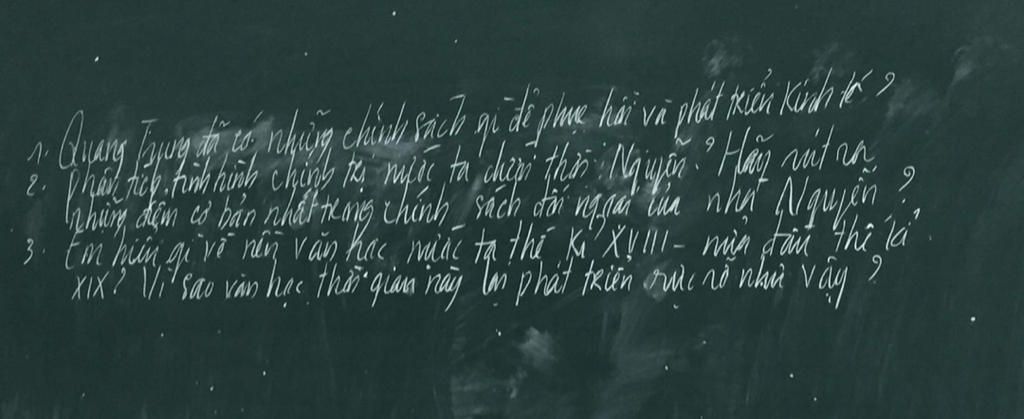 1. Quang Trung đã có những chính sách gì để phục hồi và phát triển kinh tế?
2. Phân tích tình hình chính trị nước ta dưới thời Nguyễn? Hãy rút ra
những điểm cơ bản nhất trong chính sách đối ngoại của nhà Nguyễn?
3. Em hiểu gì về nền văn học nước ta thế kỉ XVIII - nửa đầu thế kỉ
XIX? Vì sao văn học thời gian này lại phát triển rực rỡ như vậy?